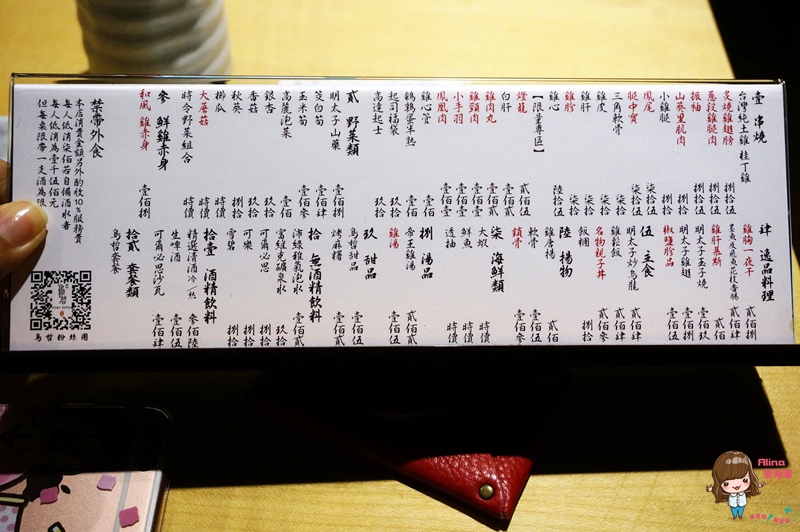 壹 串燒
台灣純土雞 桂丁雞
炙燒雞翅膀 捌拾伍
蔥段雞腿肉 捌拾伍
振袖 捌拾伍
山葵里肌肉 捌拾
小雞腿 捌拾
鳳尾 柒拾伍
腿中寶 柒拾伍
三角軟骨 柒拾
雞皮 柒拾
雞肝 柒拾
雞胗 柒拾
雞心 陸拾伍
【限量專區】
燈籠 壹佰伍
白肝 壹佰
雞肉丸 壹佰
雞頸肉 壹佰
小手羽 壹佰
鳳凰肉 壹佰
雞心管
鵪鶉蛋半熟
起司福袋 玖拾
高達起士 玖拾
貳 野菜類
明太子山藥 壹佰捌
茭白筍 壹佰肆
玉米筍 壹佰參
高麗泡菜
銀杏 玖拾
香菇 玖拾
秋葵 捌拾
櫛瓜 時價
大蘑菇 時價
時令野菜組合 時價
參 鮮雞赤身
和風 雞赤身 壹佰捌
禁帶外食
本店消費金額另外酌收10%服務費
每人低消柒佰若自備酒水者
每人低消為壹千伍佰元
但每桌限帶一支酒為限
肆 逸品料理
雞胸一夜干 貳佰捌
墨魚及飛魚花枝香腸 貳佰肆
雞肝慕斯 貳佰
明太子玉子燒 壹佰玖
明太子雞翅 壹佰捌
椒鹽胗品 壹佰伍
伍 主食
明太子炒烏龍 貳佰肆
雞鬆飯 貳佰肆
名物親子丼 貳佰參
飯糰 捌拾
陸 揚物
雞唐揚 貳佰
軟骨 壹佰伍
鎖骨 壹佰參
柒 海鮮類
大蝦 時價
鮮魚 時價
透抽 時價
捌 湯品
帝王雞湯 貳佰貳
雞湯 貳佰
玖 甜品
烏哲甜品 壹佰伍
烤麻糬 壹佰
拾 無酒精飲料
沛綠雅氣泡水 壹佰貳
富維克礦泉水 玖拾
可爾必思 捌拾
可樂 捌拾
雪碧 捌拾
拾壹 酒精飲料
精選清酒 冷/熱 參佰陸
生啤酒 壹佰伍
可爾必思沙瓦 壹佰肆
拾貳 套餐類
烏哲套餐
烏哲粉絲團
Alina